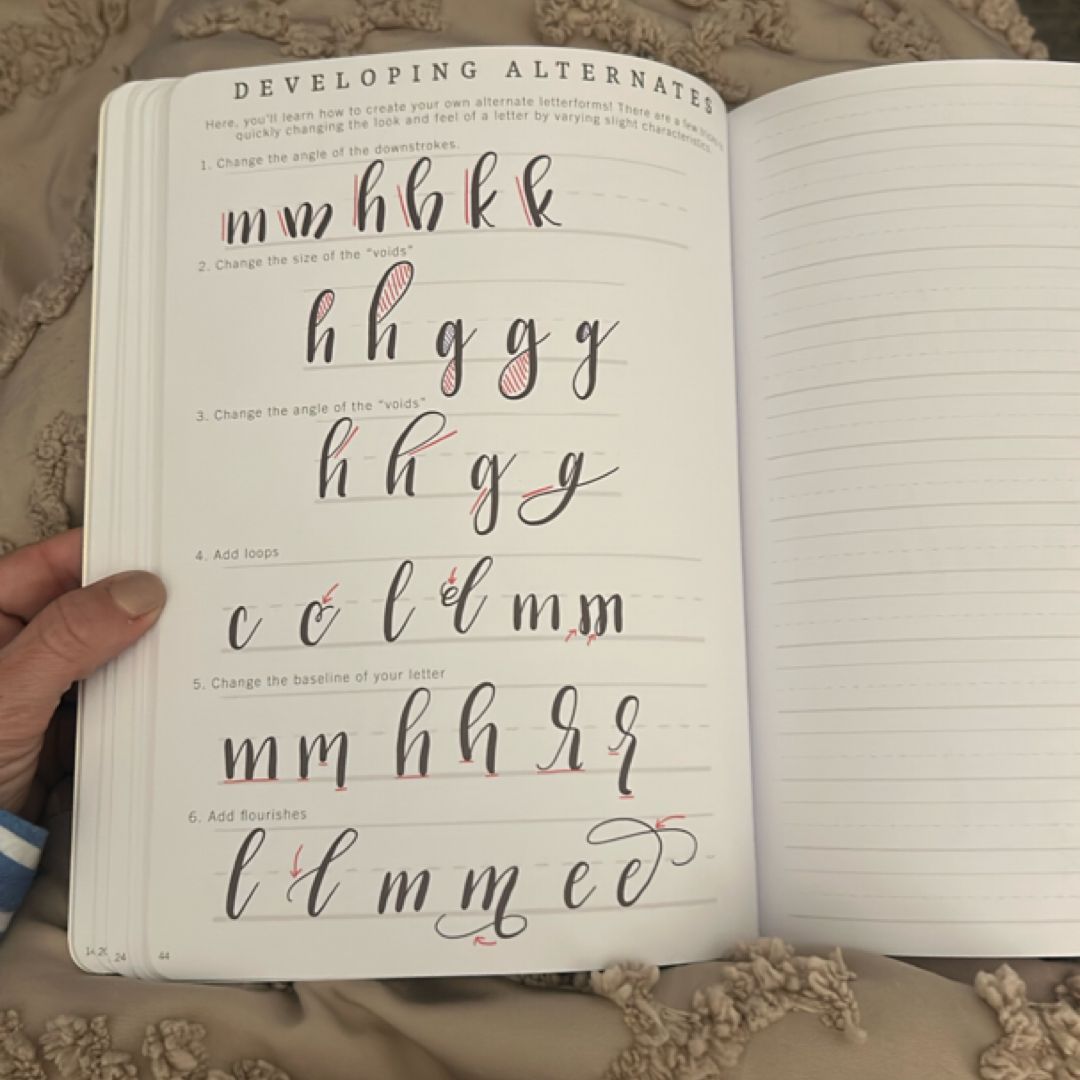 DEVELOPING ALTERNATES
Here, you'll learn how to create your own alternate letterforms! There are a few
quickly changing the look and feel of a letter by varying slight characteristics.
1. Change the angle of the downstrokes.
m m h h k k
2. Change the size of the "voids"
h h g g g
3. Change the angle of the "voids"
h h g g
4. Add loops
c c l l m m
5. Change the baseline of your letter
m m h h R R
6. Add flourishes
l l m m e e
24 44